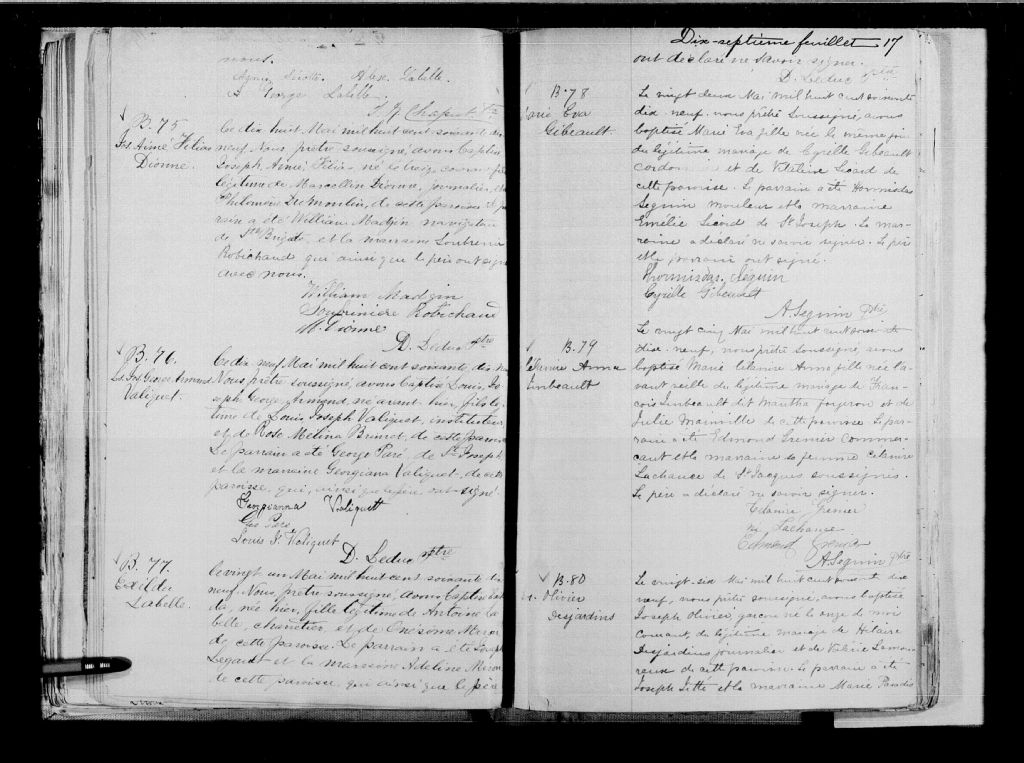 nous.
Agnes Alex. Labelle.
George Labelle
B. 75
Jos. Aimé Félix
Dionne.
Le dix huit Mai mil huit cent soixante dix
neuf. Nous prêtre soussigné, avons baptisé
Joseph, Aimé, Félix né le treize courant fils
légitime de Marcellin Dionne, journalier, et de
Philomène Dumoulin, de cette paroisse. Le par-
rain a été William Madgin navigateur
de Ste Brigide, et la marraine
Robichaud qui ainsi que le père ont signé
avec nous.
William Madgin
Robichaud
M. Dionne
D. Leduc ptre
B. 76
Ls. Jos. George Armand
Valiquet.
Le dix neuf Mai mil huit cent soixante dix neuf
Nous prêtre soussigné, avons baptisé Louis, Jo-
seph, George, Armand, né avant-hier, fils légi-
time de Louis Joseph Valiquet, instituteur
et de Rose Mélina Brunet, de cette paroisse
Le parrain a été George Paré, de St Joseph
et la marraine Georgiana Valiquet, de cette
paroisse, qui, ainsi que le père ont signé.
Georgianna Valiquett
Geo Paré
Louis J. Valiquet
D. Leduc ptre
B. 77.
Exilda
Labelle.
Le vingt un Mai mil huit cent soixante dix
neuf. Nous, prêtre soussigné, avons baptisé Exil-
da, née hier, fille légitime de Antoine La-
belle, charretier, et de Onésime
de cette paroisse. Le parrain a été Joseph
Legault et la marraine Adeline
de cette paroisse, qui ainsi que le père
Dix-septième feuillet 17
ont déclaré ne savoir signer.
D. Leduc ptre
B. 78
Marie Eva
Gibeault.
Le vingt deux Mai mil huit cent soixante
dix neuf. nous, prêtre soussigné, avons
baptisé Marie Eva fille née le même jour
du légitime mariage de Cyrille Gibeault
cordon et de Vitaline Sicard de
cette paroisse. Le parrain a été Hormisdas
Séguin mouleur et la marraine
Emélie Sicard de St Joseph. La mar-
raine a déclaré ne savoir signer. Le père
et le parrain ont signé.
Hormisdas Séguin
Cyrille Gibeault
A. Séguin Ptre
B. 79
Célanire Anna
Imbeault
Le vingt cinq Mai mil huit cent soixante
dix-neuf, nous prêtre soussigné, avons
baptisé Marie Célanire Anna fille née l'a-
vant veille du légitime mariage de Fran-
çois Imbeault dit Mantha forgeron et de
Julie Mainville de cette paroisse. Le par-
rain a été Edmond Grenier Commer-
çant et la marraine sa femme Célanire
Lachance de St Jacques soussignés.
Le père a déclaré ne savoir signer.
Célanire Grenier
née Lachance
Edmond Grenier
A. Séguin Ptre
B. 80
Olivier
Desjardins
Le vingt-six Mai mil huit cent soixante dix
neuf, nous prêtre soussigné, avons baptisé
Joseph Olivier garçon né le onze du mois
courant du légitime mariage de Hilaire
Desjardins journalier et de Valérie Lamou-
reux de cette paroisse. Le parrain a été
Joseph et la marraine Marie Paradis